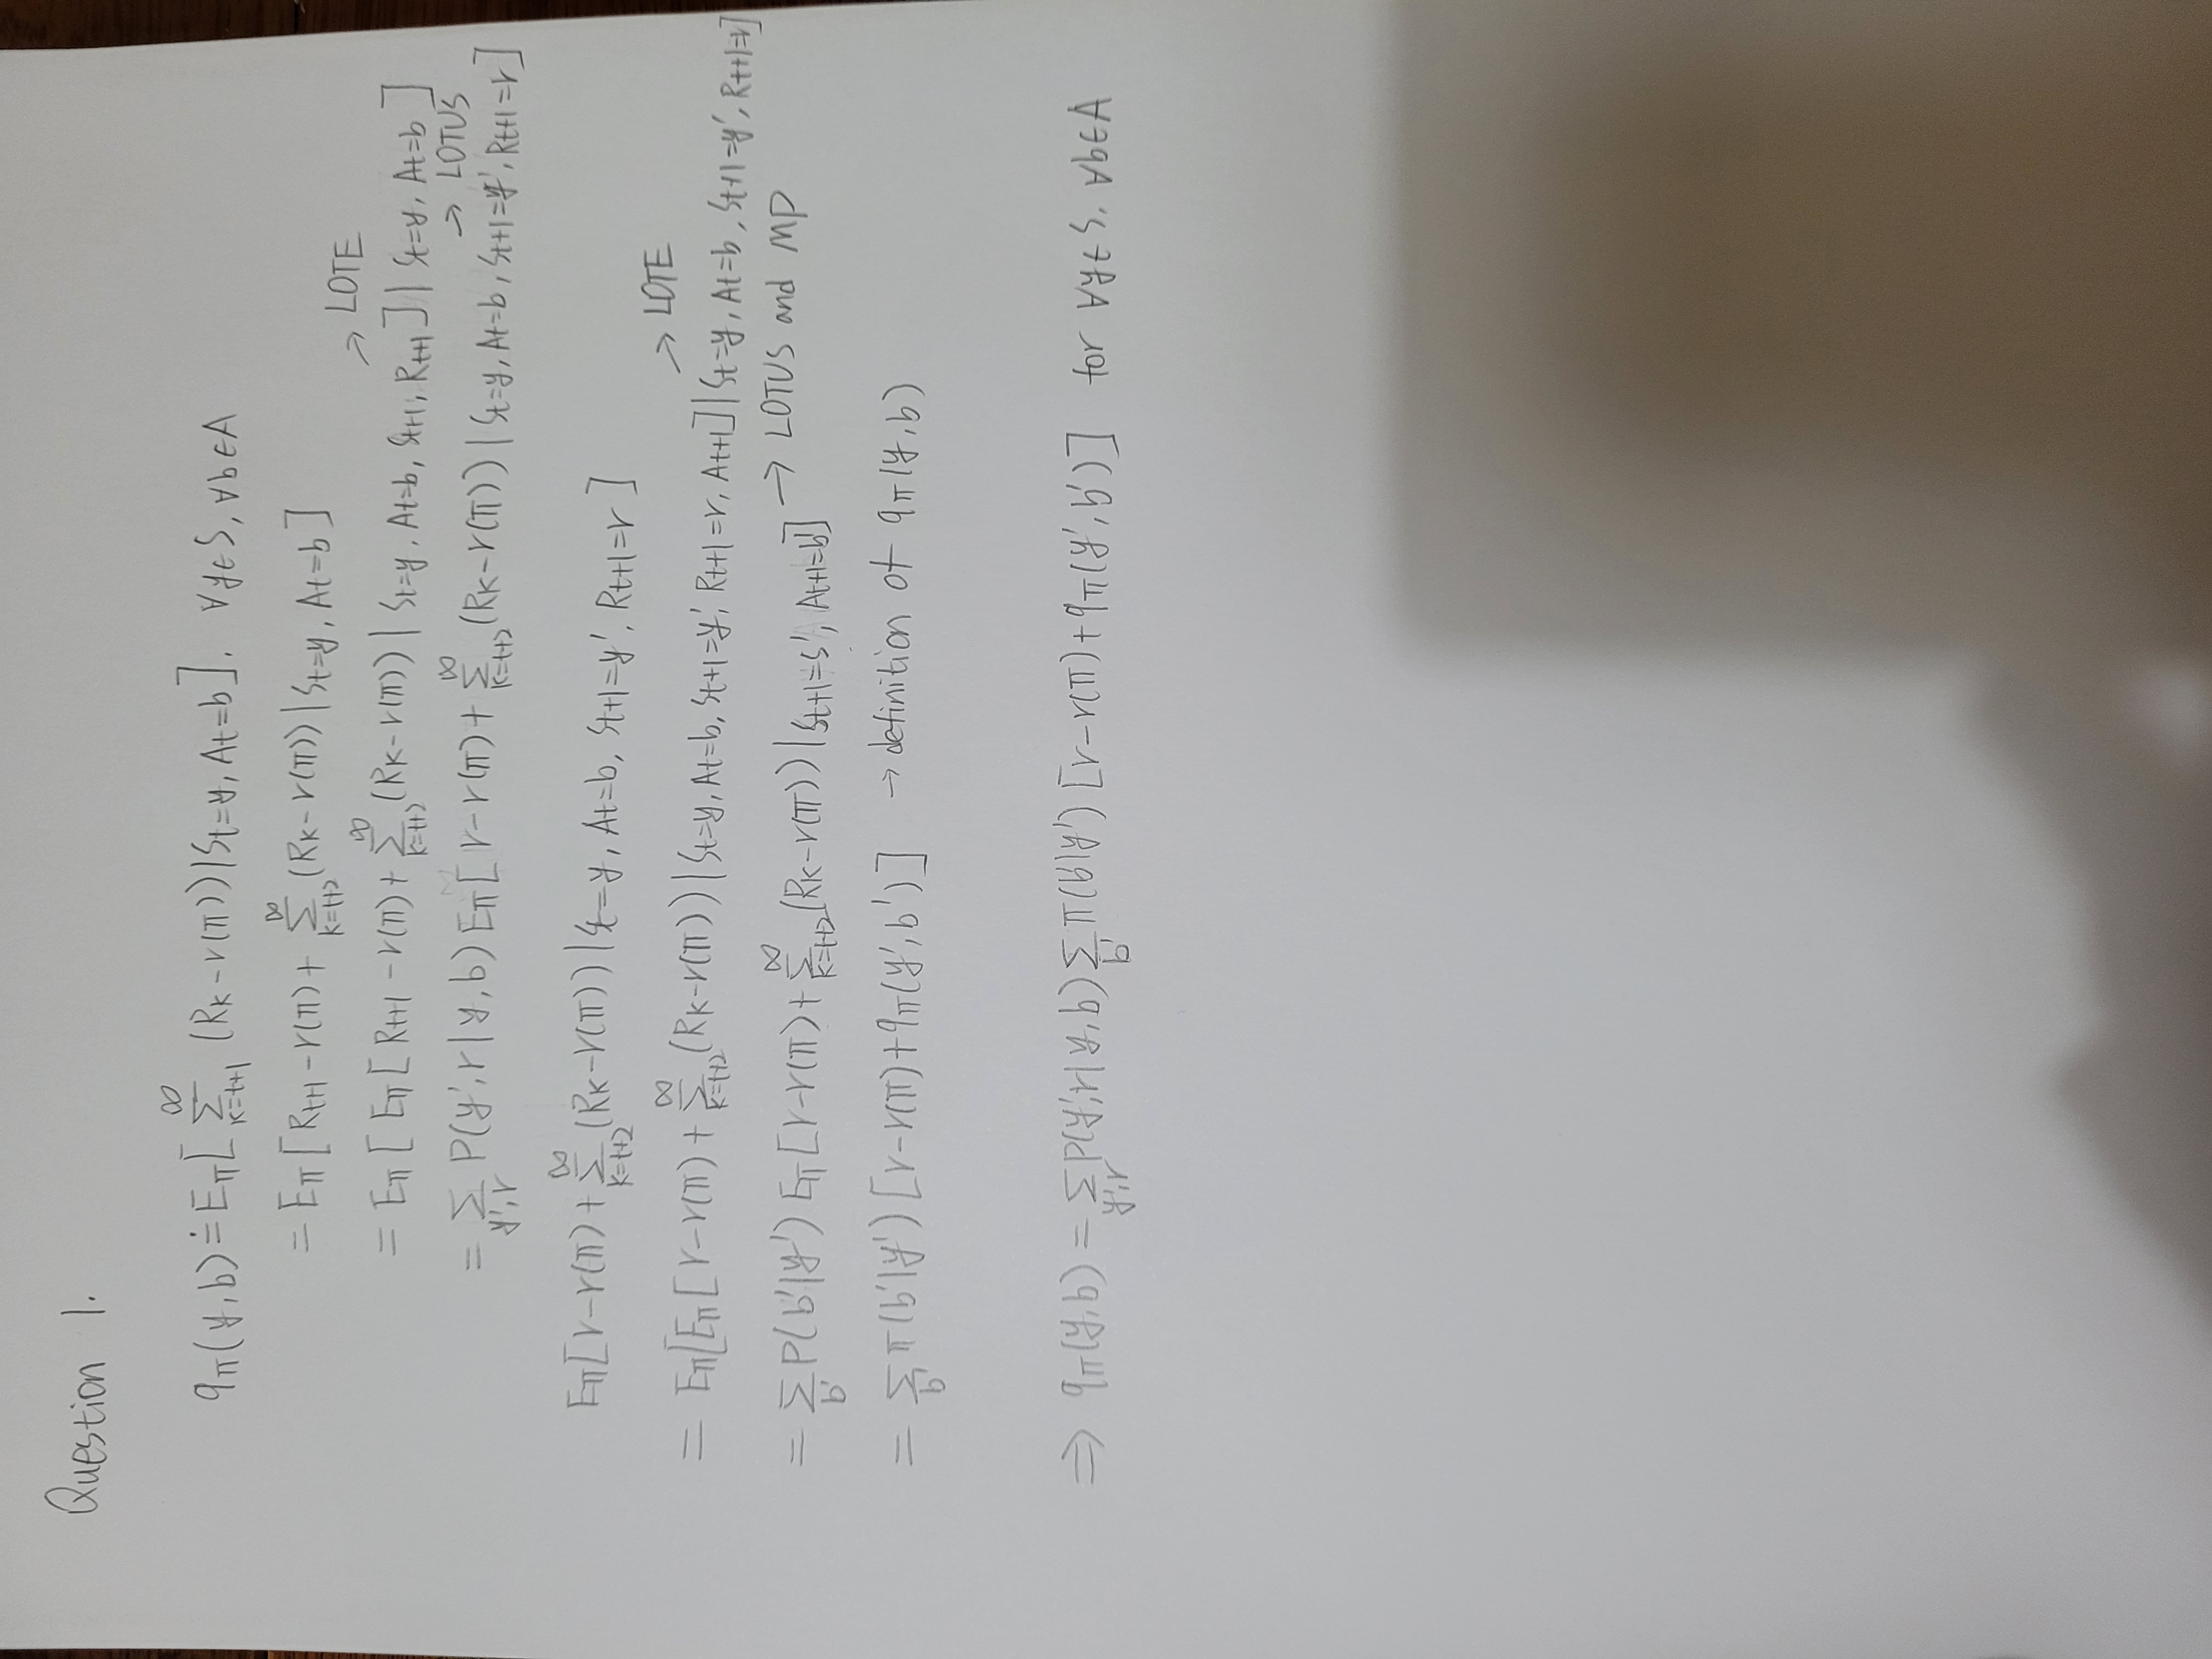 Question 1.
qπ(y,b) ≐ Eπ[ ∑_{k=t+1}^{∞} (Rk − r(π)) | St=y, At=b ]. ∀y∈S, ∀b∈A
= Eπ[ Rt+1 − r(π) + ∑_{k=t+2}^{∞} (Rk − r(π)) | St=y, At=b ]
→ LOTE
= Eπ[ Eπ[ Rt+1 − r(π) + ∑_{k=t+2}^{∞} (Rk − r(π)) | St=y, At=b, St+1, Rt+1 ] | St=y, At=b ]
→ LOTUS
= ∑_{y',r} P(y',r|y,b) Eπ[ r − r(π) + ∑_{k=t+2}^{∞} (Rk − r(π)) | St=y, At=b, St+1=y', Rt+1=r ]
Eπ[ r − r(π) + ∑_{k=t+2}^{∞} (Rk − r(π)) | St=y, At=b, St+1=y', Rt+1=r ]
→ LOTE
= Eπ[ Eπ[ r − r(π) + ∑_{k=t+2}^{∞} (Rk − r(π)) | St=y, At=b, St+1=y', Rt+1=r, At+1 ] | St=y, At=b, St+1=y', Rt+1=r ]
= ∑_{b'} P(b'|y') Eπ[ r − r(π) + ∑_{k=t+2}^{∞} (Rk − r(π)) | St+1=s', At+1=b' ] → LOTUS and MP
= ∑_{b'} π(b'|y') [ r − r(π) + qπ(y',b') ] → definition of qπ(y,b)
⇒ qπ(y,b) = ∑_{y',r} P(y',r|y,b) ∑_{b'} π(b'|y') [ r − r(π) + qπ(y',b') ] for ∀y∈S, ∀b∈A